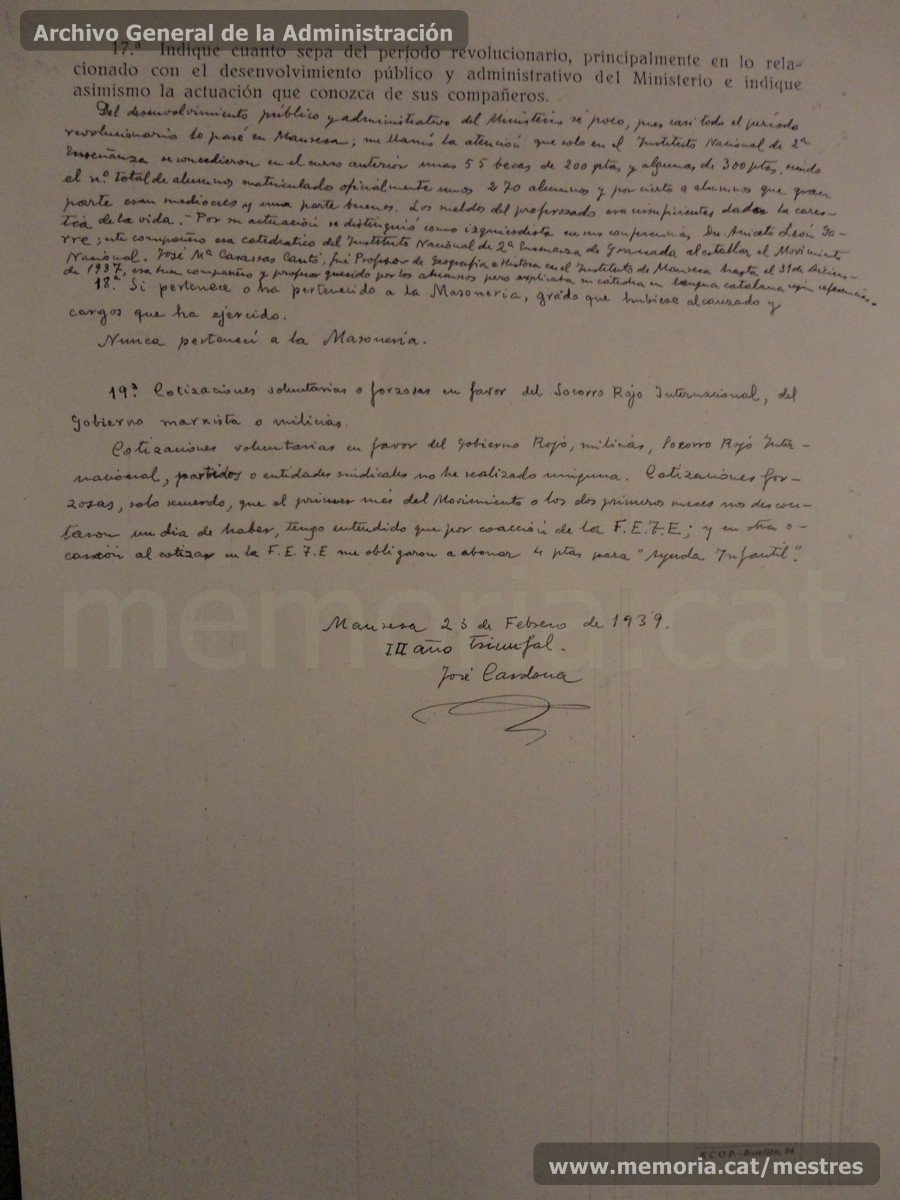 Archivo General de la Administración
17.ª Indique cuanto sepa del período revolucionario, principalmente en lo rela-
cionado con el desenvolvimiento público y administrativo del Ministerio e indique
asimismo la actuación que conozca de sus compañeros.
Del desenvolvimiento público y administrativo del Ministerio sé poco, pues casi todo el período
revolucionario lo pasé en Manresa; me llamó la atención que solo en el Instituto Nacional de 2ª
Enseñanza se concedieron en el curso anterior unas 55 becas de 200 ptas, y algunas de 300 ptas, siendo
el nº total de alumnos matriculado oficialmente unos 270 alumnos y por cierto a alumnos que gran
parte eran mediocres y una parte buenos. Los sueldos del profesorado era insuficientes dada la cares-
tía de la vida. - Por su actuación se distinguió como izquierdista en sus conferencias Dn. Aniceto León Ga-
rre; este compañero era catedrático del Instituto Nacional de 2ª Enseñanza de Granada al estallar el Movimiento
Nacional. José Mª Casassas Cantó, fué Profesor de Geografía e Historia en el Instituto de Manresa hasta el 31 de Diciem-
de 1937, era buen compañero y profesor querido por los alumnos pero explicaba su cátedra en lengua catalana según referencias.
18.ª Si pertenece o ha pertenecido a la Masonería, grado que hubiese alcanzado y
cargos que ha ejercido.
Nunca pertenecí a la Masonería.
19ª Cotizaciones voluntarias o forzosas en favor del Socorro Rojo Internacional, del
Gobierno marxista o milicias.
Cotizaciones voluntarias en favor del Gobierno Rojo, milicias, Socorro Rojo Inter-
nacional, partidos o entidades sindicales no he realizado ninguna. Cotizaciones for-
zosas, solo recuerdo, que el primer mes del Movimiento o los dos primeros meses nos descon-
taron un dia de haber, tengo entendido que por coacción de la F.E.T.E; y en otra o-
casión al cotizar en la F.E.T.E me obligaron a abonar 4 ptas para "Ayuda Infantil".
memoria.cat
Manresa 23 de Febrero de 1939.
III año Triunfal.
José Cardona
www.memoria.cat/mestres